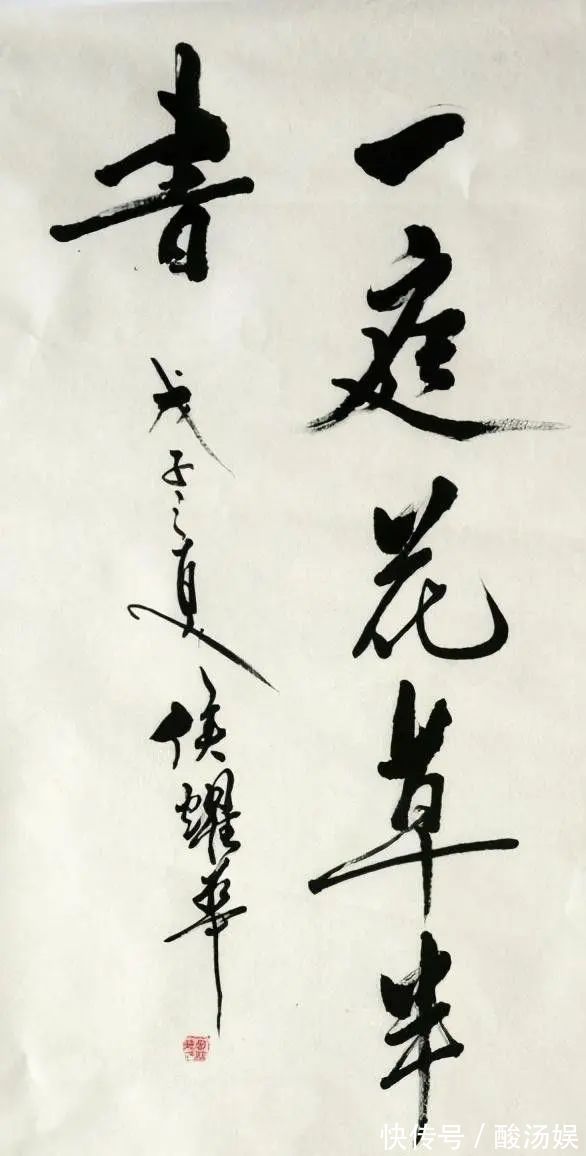 一庭花草半
書
戊子之夏 侯耀華
快传号 / 酸汤娱